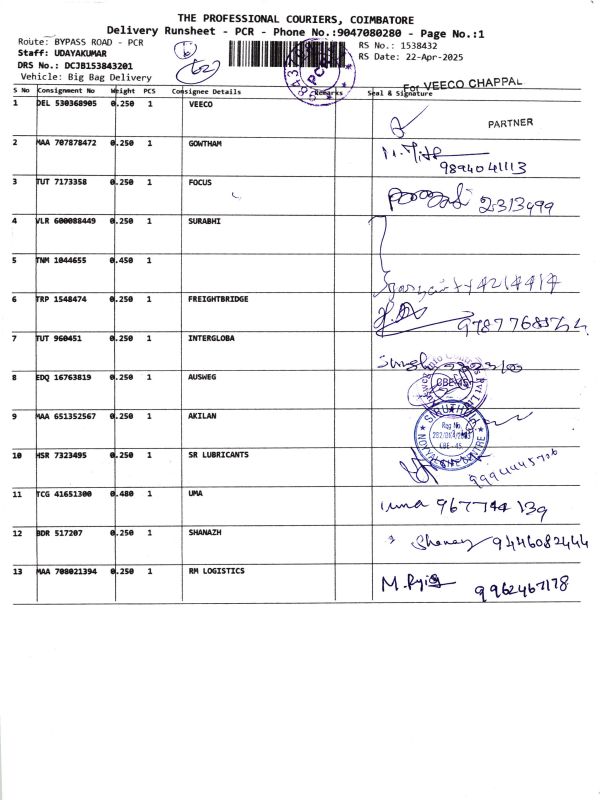 THE PROFESSIONAL COURIERS, COIMBATORE
Delivery Runsheet - PCR - Phone No.:9047080280 - Page No.:1
Route: BYPASS ROAD - PCR
Staff: UDAYAKUMAR
DRS No.: DCJB153843201
Vehicle: Big Bag Delivery
RS No.: 1538432
RS Date: 22-Apr-2025
For VEECO CHAPPAL
S No Consignment No Weight PCS Consignee Details Remarks Seal & Signature
1 DEL 530368905 0.250 1 VEECO
PARTNER
2 MAA 707878472 0.250 1 GOWTHAM
9894041113
3 TUT 7173358 0.250 1 FOCUS
2313499
4 VLR 600088449 0.250 1 SURABHI
5 TNM 1044655 0.450 1
4214414
6 TRP 1548474 0.250 1 FREIGHTBRIDGE
7 TUT 960451 0.250 1 INTERGLOBA
8 EDQ 16763819 0.250 1 AUSWEG
CBE-45
9 MAA 651352567 0.250 1 AKILAN
Reg No.
CBE - 45
10 HSR 7323495 0.250 1 SR LUBRICANTS
11 TCG 41651300 0.480 1 UMA
uma 967744 139
12 BDR 517207 0.250 1 SHANAZH
9446082444
13 MAA 708021394 0.250 1 RM LOGISTICS
9962467178